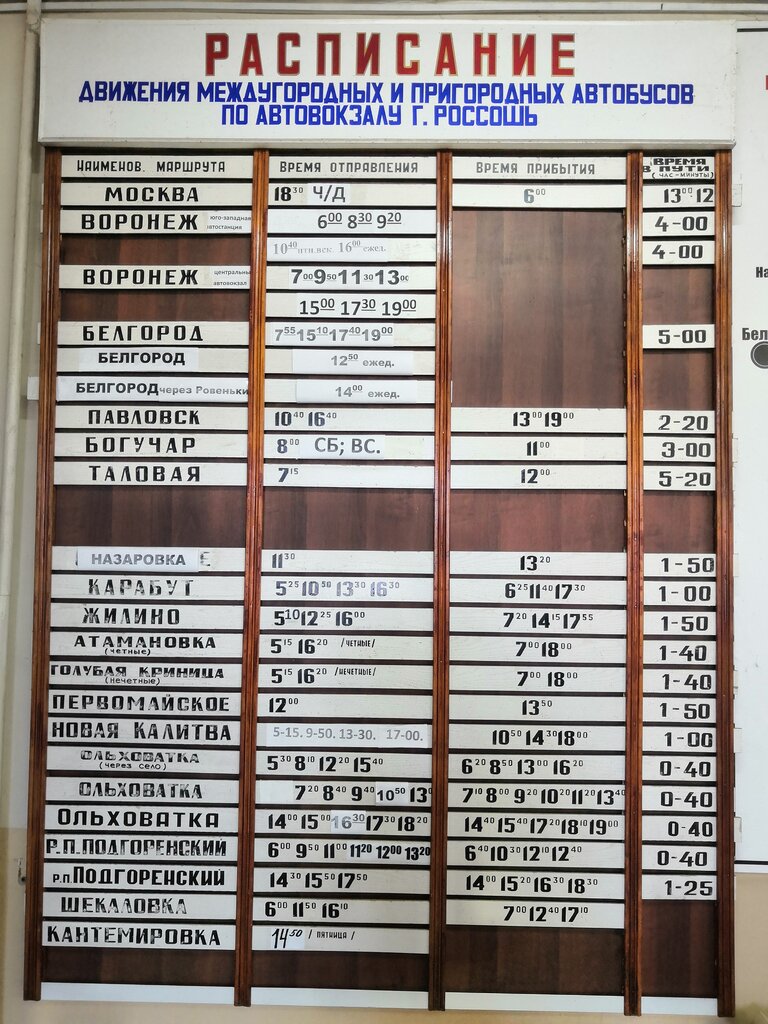 РАСПИСАНИЕ
ДВИЖЕНИЯ МЕЖДУГОРОДНЫХ И ПРИГОРОДНЫХ АВТОБУСОВ
ПО АВТОВОКЗАЛУ Г. РОССОШЬ
НАИМЕНОВ. МАРШРУТА ВРЕМЯ ОТПРАВЛЕНИЯ ВРЕМЯ ПРИБЫТИЯ ВРЕМЯ В ПУТИ (ЧАС-МИНУТЫ)
МОСКВА 18³⁰ Ч/Д 6⁰⁰ 13⁰⁰ 12
ВОРОНЕЖ юго-западная автостанция 6⁰⁰ 8³⁰ 9²⁰ 4-00
10⁴⁰ птн.вск. 16⁰⁰ ежед. 4-00
ВОРОНЕЖ центральный автовокзал 7⁰⁰ 9⁵⁰ 11³⁰ 13⁰⁰
15⁰⁰ 17³⁰ 19⁰⁰
БЕЛГОРОД 7⁵⁵ 15¹⁰ 17⁴⁰ 19⁰⁰ 5-00
БЕЛГОРОД 12⁵⁰ ежед.
БЕЛГОРОД через Ровеньки 14⁰⁰ ежед.
ПАВЛОВСК 10⁴⁰ 16⁴⁰ 13⁰⁰ 19⁰⁰ 2-20
БОГУЧАР 8⁰⁰ СБ; ВС. 11⁰⁰ 3-00
ТАЛОВАЯ 7¹⁵ 12⁰⁰ 5-20
НАЗАРОВКА 11³⁰ 13²⁰ 1-50
КАРАБУТ 5²⁵ 10⁵⁰ 13³⁰ 16³⁰ 6²⁵ 11⁴⁰ 17³⁰ 1-00
ЖИЛИНО 5¹⁰ 12²⁵ 16⁰⁰ 7²⁰ 14¹⁵ 17⁵⁵ 1-50
АТАМАНОВКА (четные) 5¹⁵ 16²⁰ /ЧЕТНЫЕ/ 7⁰⁰ 18⁰⁰ 1-40
ГОЛУБАЯ КРИНИЦА (нечетные) 5¹⁵ 16²⁰ /НЕЧЕТНЫЕ/ 7⁰⁰ 18⁰⁰ 1-40
ПЕРВОМАЙСКОЕ 12⁰⁰ 13⁵⁰ 1-50
НОВАЯ КАЛИТВА 5-15. 9-50. 13-30. 17-00. 10⁵⁰ 14³⁰ 18⁰⁰ 1-00
ОЛЬХОВАТКА (через село) 5³⁰ 8¹⁰ 12²⁰ 15⁴⁰ 6²⁰ 8⁵⁰ 13⁰⁰ 16²⁰ 0-40
ОЛЬХОВАТКА 7²⁰ 8⁴⁰ 9⁴⁰ 10⁵⁰ 13⁰ 7¹⁰ 8⁰⁰ 9²⁰ 10²⁰ 11²⁰ 13⁴⁰ 0-40
ОЛЬХОВАТКА 14⁰⁰ 15⁰⁰ 16³⁰ 17³⁰ 18²⁰ 14⁴⁰ 15⁴⁰ 17²⁰ 18¹⁰ 19⁰⁰ 0-40
Р.П.ПОДГОРЕНСКИЙ 6⁰⁰ 9⁵⁰ 11⁰⁰ 11²⁰ 12⁰⁰ 13²⁰ 6⁴⁰ 10³⁰ 12¹⁰ 12⁴⁰ 0-40
р.п ПОДГОРЕНСКИЙ 14³⁰ 15⁵⁰ 17⁵⁰ 14⁰⁰ 15²⁰ 16³⁰ 18³⁰ 1-25
ШЕКАЛОВКА 6⁰⁰ 11⁵⁰ 16¹⁰ 7⁰⁰ 12⁴⁰ 17¹⁰
КАНТЕМИРОВКА 14⁵⁰ / ПЯТНИЦА /